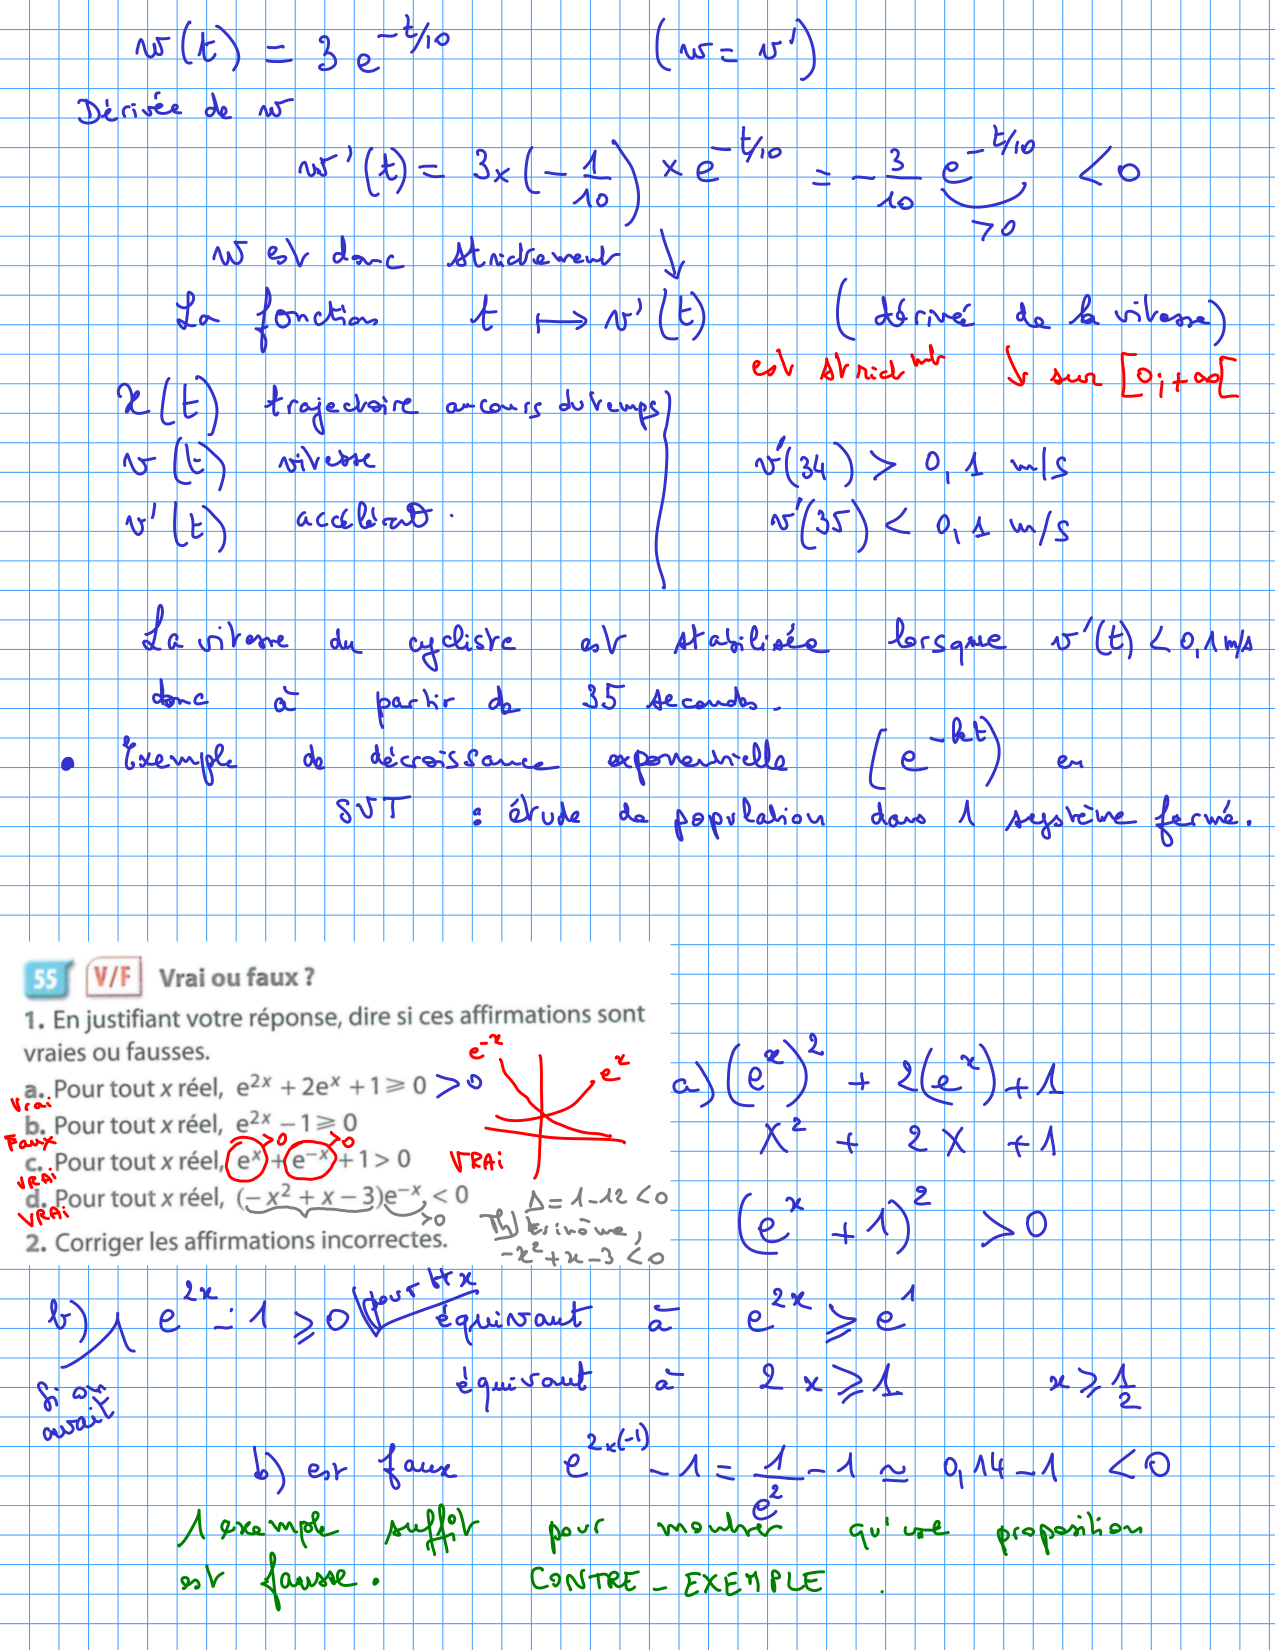 w(t) = 3 e^{-t/10}    (w = v')
Dérivée de w
w'(t) = 3 × (-1/10) × e^{-t/10} = -3/10 e^{-t/10} < 0
> 0
w est donc strictement ↘
La fonction t ⟼ v'(t) (dérivée de la vitesse)
est strict^{mt} ↘ sur [0;+∞[
x(t) trajectoire au cours du temps
v(t) vitesse    v'(34) > 0,1 m/s
v'(t) accélérat°.    v'(35) < 0,1 m/s
La vitesse du cycliste est stabilisée lorsque v'(t) < 0,1 m/s
donc à partir de 35 secondes.
• Exemple de décroissance exponentielle (e^{-kt}) en
SVT : étude de population dans 1 système fermé.
55 V/F Vrai ou faux ?
1. En justifiant votre réponse, dire si ces affirmations sont
vraies ou fausses.
e^{-x} e^x
a. Pour tout x réel, e^{2x} + 2e^x + 1 ⩾ 0 > 0
Vrai
b. Pour tout x réel, e^{2x} − 1 ⩾ 0
Faux
>0 >0
c. Pour tout x réel, e^x + e^{-x} + 1 > 0 VRAi
VRAi
d. Pour tout x réel, (−x² + x − 3)e^{-x} < 0
VRAi
>0
Δ = 1-12 < 0
Th) trinôme,
-x²+x-3 < 0
2. Corriger les affirmations incorrectes.
a) (e^x)² + 2(e^x) + 1
X² + 2X + 1
(e^x + 1)² > 0
b) e^{2x} - 1 ⩾ 0 pour tt x équivaut à e^{2x} ⩾ e^1
Si on
avait
équivaut à 2x ⩾ 1    x ⩾ 1/2
b) est faux e^{2×(-1)} - 1 = 1/e² - 1 ≃ 0,14 - 1 < 0
1 exemple suffit pour montrer qu'une proposition
est fausse. CONTRE-EXEMPLE.